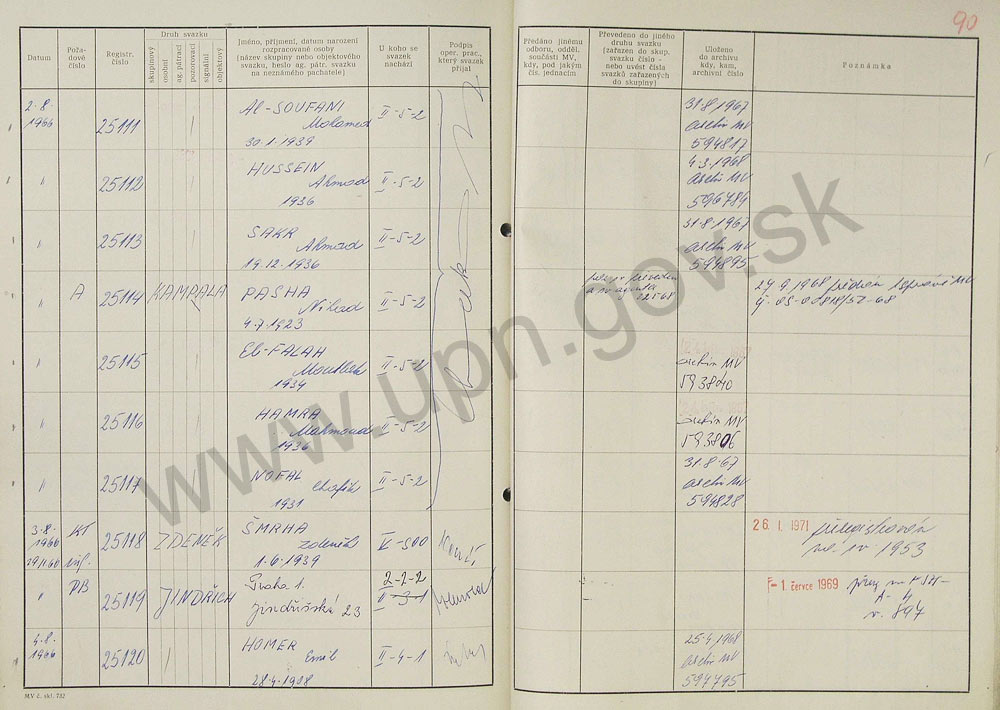 90
Datum
Požadové číslo
Registr. číslo
Druh svazku
skupinový
osobní
ag. pátrací
pozorovací
signální
objektový
Jméno, příjmení, datum narození
rozpracované osoby
(název skupiny nebo objektového
svazku, heslo ag. pátr. svazku
na neznámého pachatele)
U koho se
svazek
nachází
Podpis
oper. prac.,
který svazek
přijal
Předáno jinému
odboru, odděl.
součásti MV,
kdy, pod jakým
čís. jednacím
Převedeno do jiného
druhu svazku
(zařazen do skup.
svazku číslo -
nebo uvést čísla
svazků zařazených
do skupiny)
Uloženo
do archivu
kdy, kam,
archivní číslo
Poznámka
2.8.
1966
25111
Al-SOUFANI
Mohamed
30.1.1939
II-5-2
31.8.1967
archiv MV
594817
"
25112
HUSSEIN
Ahmad
1936
II-5-2
4.3.1968
archiv MV
596784
"
25113
SAKR
Ahmad
19.12.1936
II-5-2
31.8.1967
archiv MV
594895
"
A
25114
KAMPALA
PASHA
Nihad
4.7.1923
II-5-2
"
25115
El-FALAH
1934
II-5-2
archiv MV
593840
"
25116
HAMRA
Mahmoud
1936
II-5-2
archiv MV
593806
"
25117
NOFAL
Chafik
1931
II-5-2
31.8.67
archiv MV
594828
3.8.
1966
KT
25118
ZDENĚK
ŠMRHA
Zdeněk
1.6.1939
26. I. 1971
1953
"
PB
25119
JINDŘICH
Praha 1.
Jindřišská 23
2-2-2
II-3-1
F- 1. červce 1969
894
4.8.
1966
25120
HOMER
Emil
28.4.1908
II-4-1
25.4.1968
archiv MV
597795
MV č. skl. 732
www.upn.gov.sk